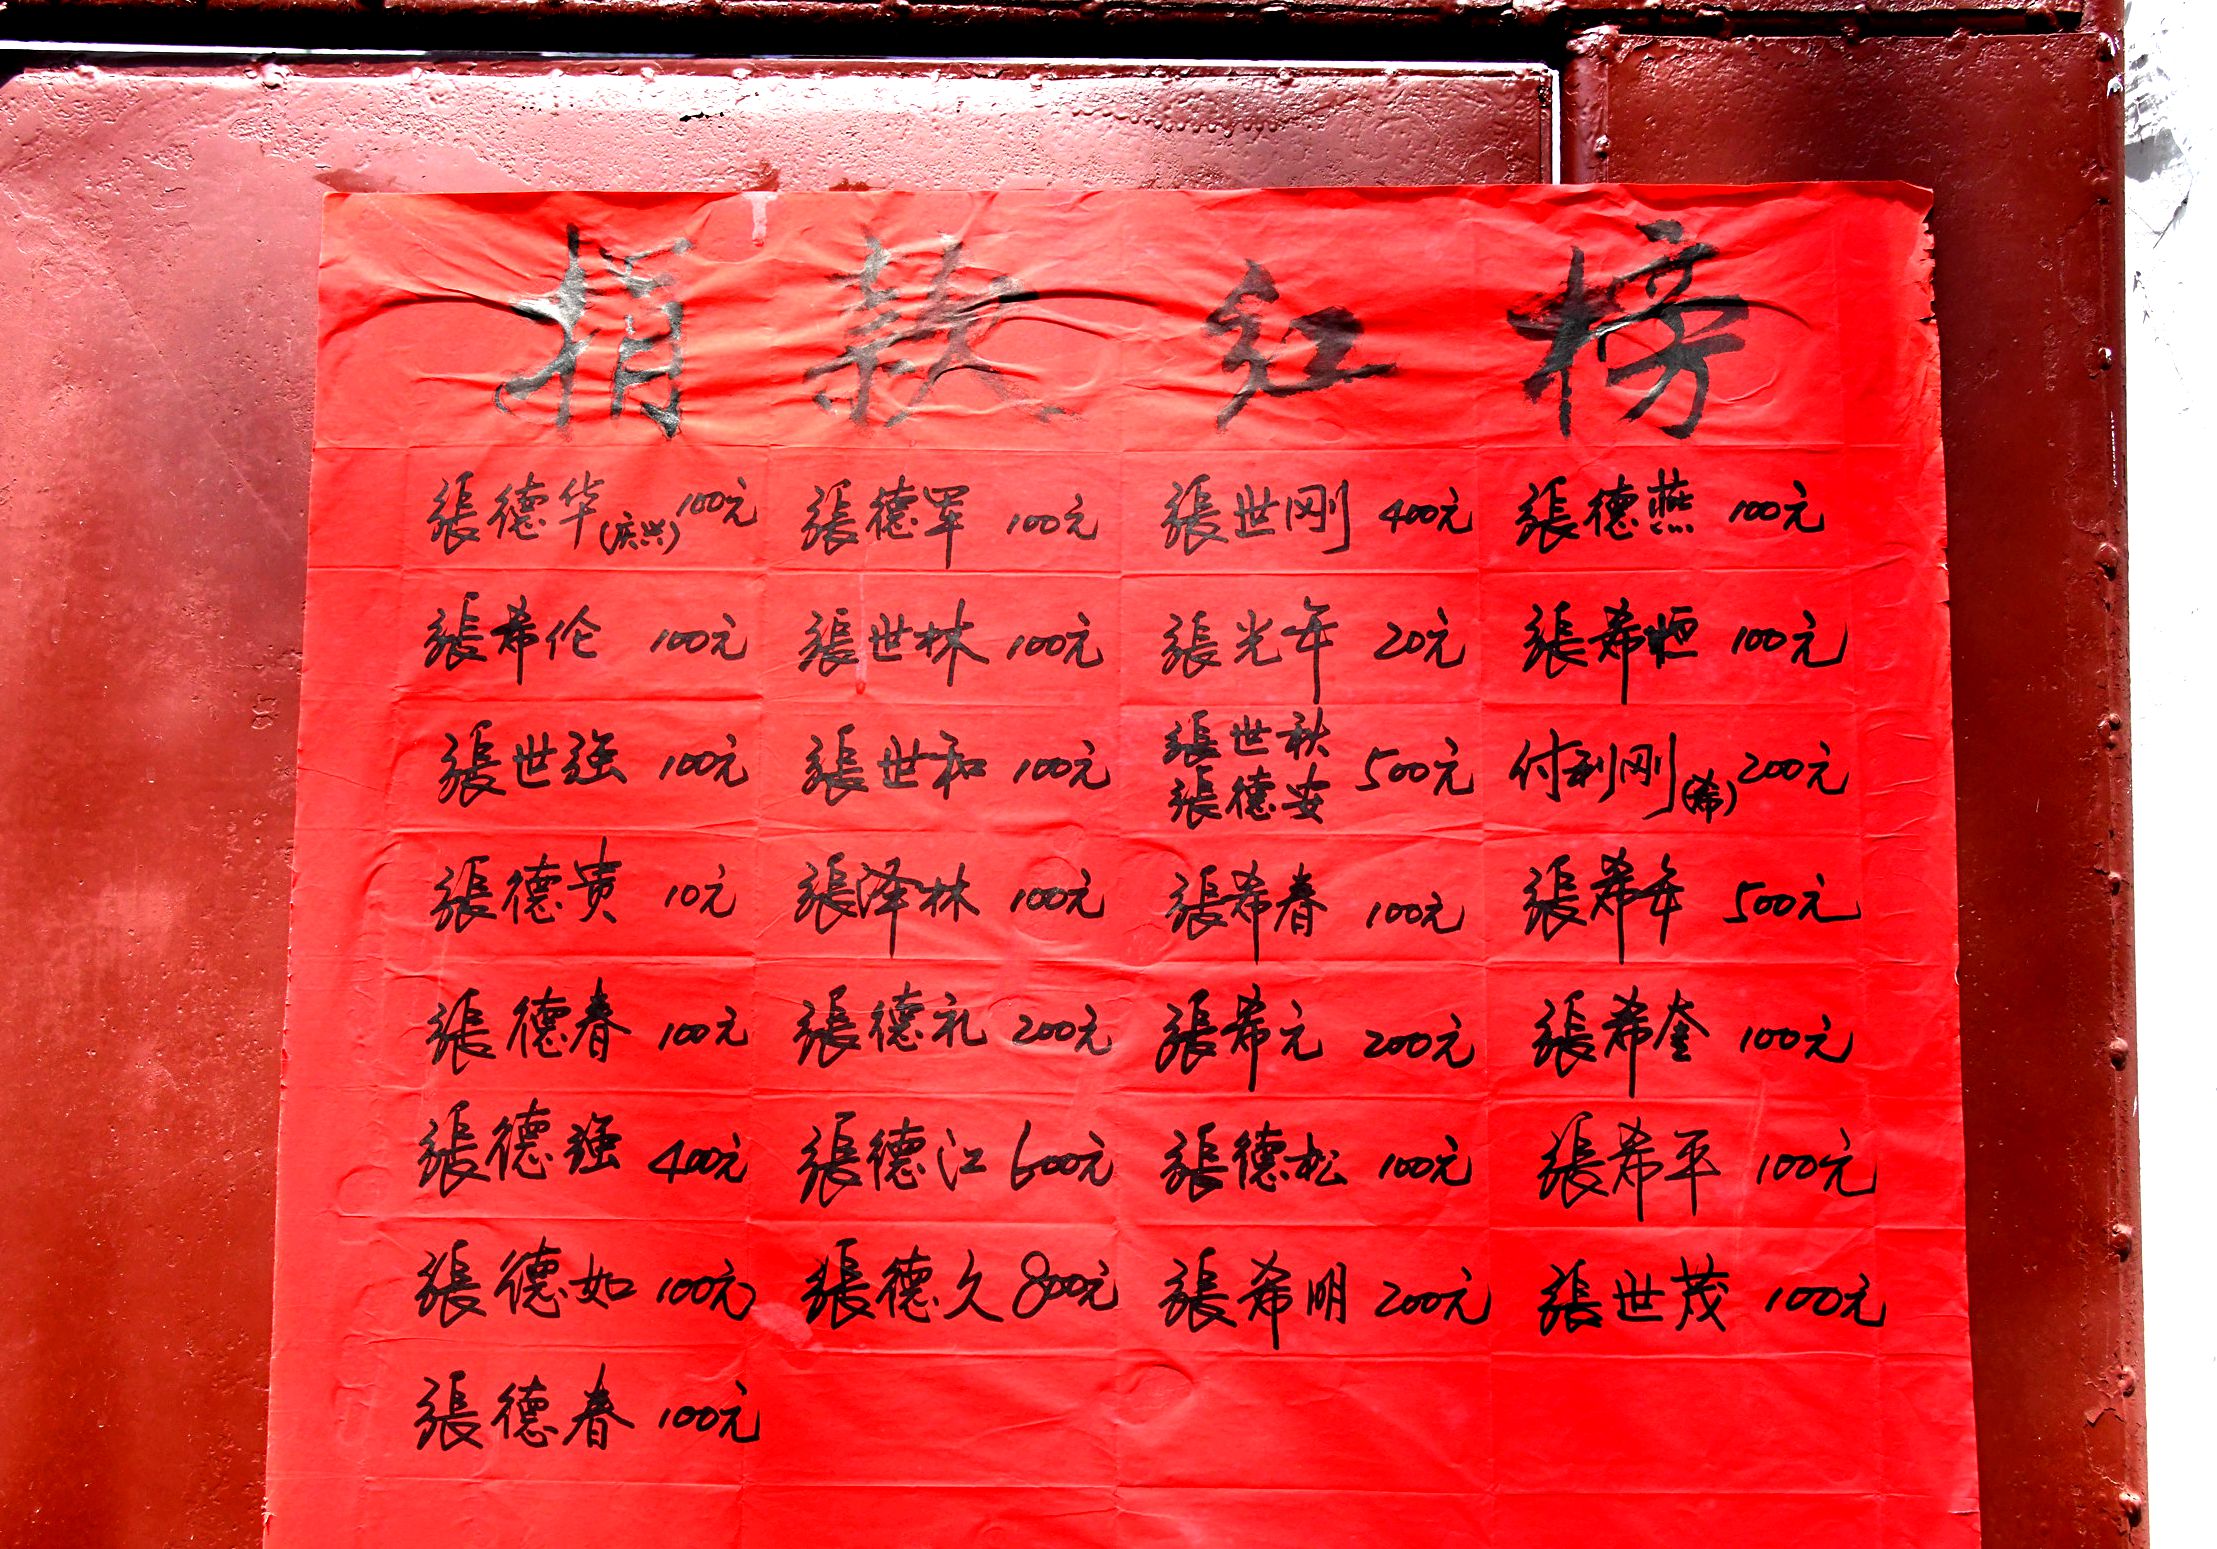 捐款红榜
張德华(庆兴)100元 張德军 100元 張世刚 400元 張德燕 100元
張希伦 100元 張世林 100元 張光年 20元 張希恒 100元
張世强 100元 張世和 100元 張世秋 張德安 500元 付利刚(希)200元
張德贵 10元 張泽林 100元 張希春 100元 張希年 500元
張德春 100元 張德礼 200元 張希元 200元 張希奎 100元
張德强 400元 張德江 600元 張德松 100元 張希平 100元
張德如 100元 張德久 800元 張希明 200元 張世茂 100元
張德春 100元